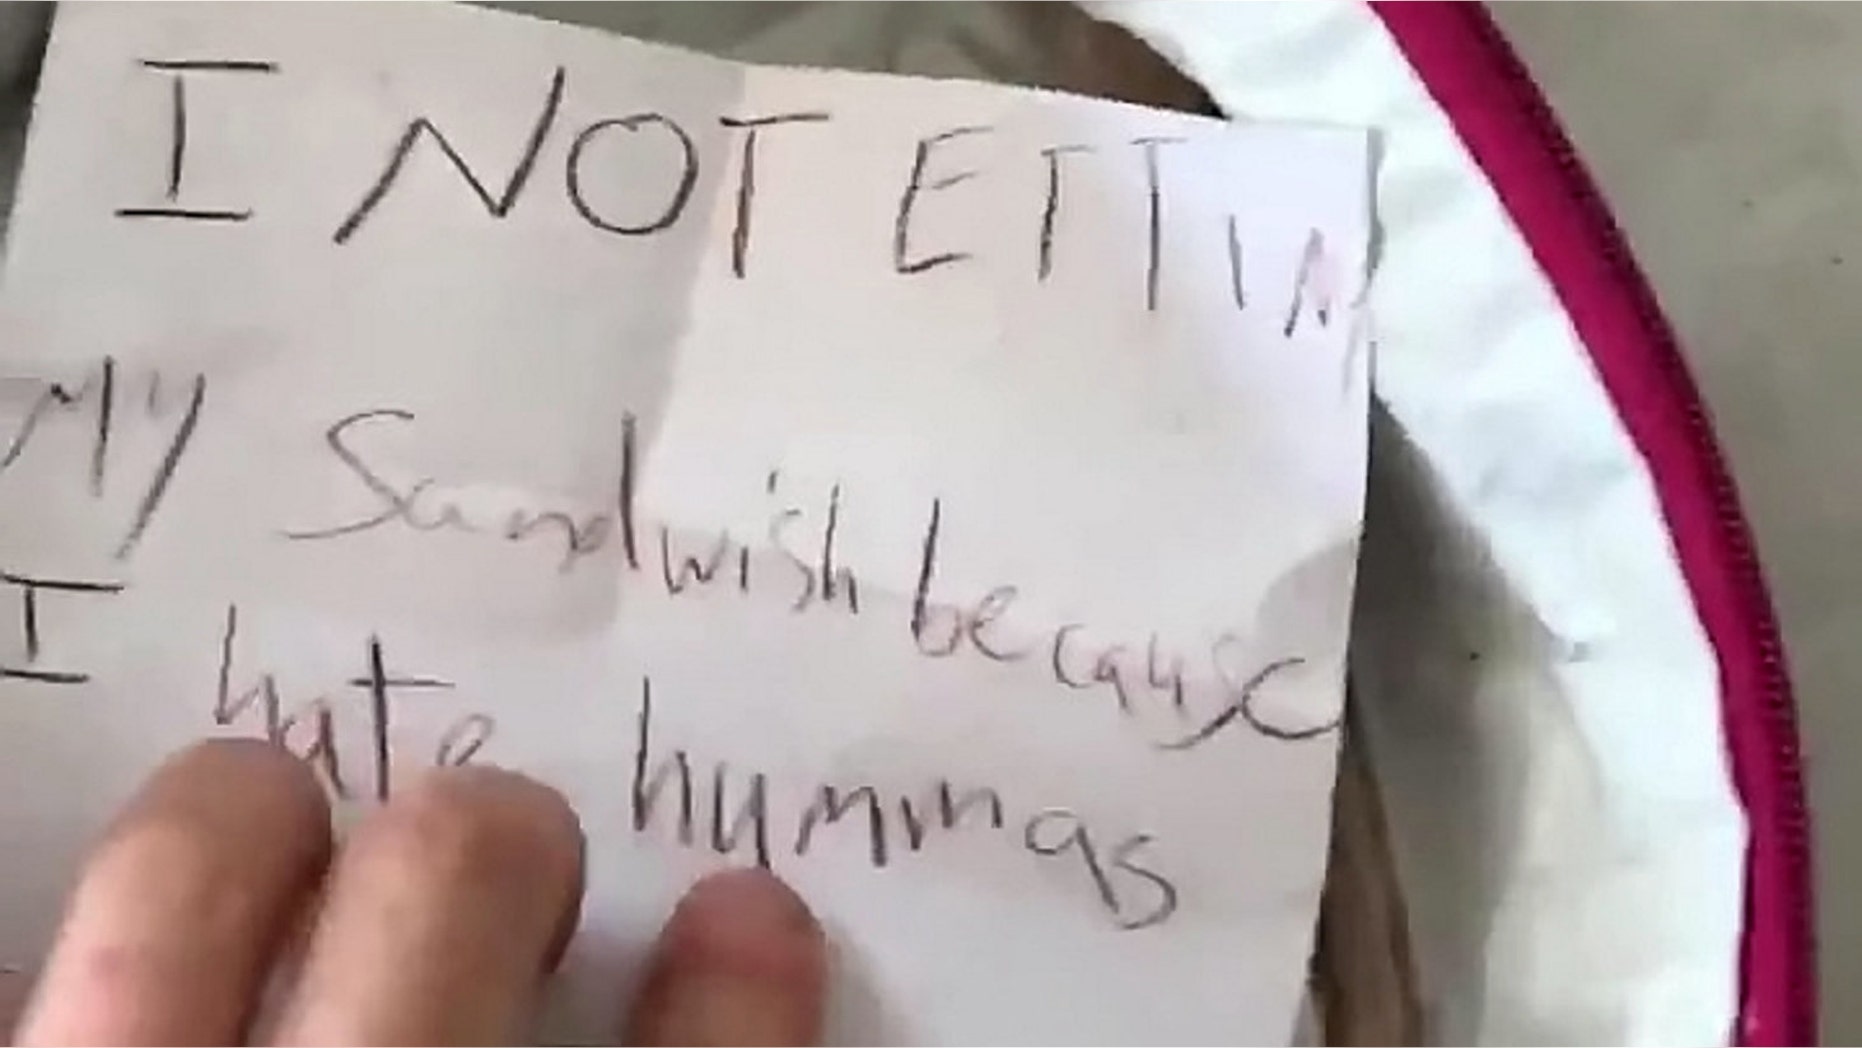 I NOT ETTIN
MY Sandwish because
I hate hummas